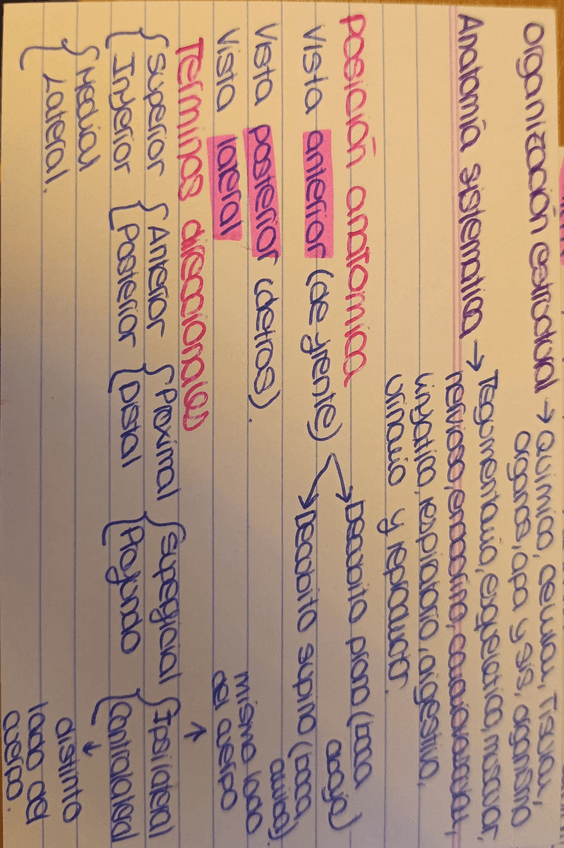 Organización estructural → Química, celular, Tisular,
organos, apa y sis, organismo
Anatomía sistematica → Tegumentario, esqueletico, muscular,
nervioso, endocrino, cardiovascular,
linfatica, respiratorio, digestivo,
urinario y reproductor.
Posición anatomica
Vista anterior (de frente) → Decubito prono (boca abajo)
→ Decubito supino (boca arriba).
Vista posterior (detras).
Vista lateral
Terminos direccionales
Superior Anterior Proximal Superficial Ipsilateral → mismo lado del cuerpo
Inferior Posterior Distal Profundo Contralateral → distinto lado del cuerpo.
Medial
Lateral.